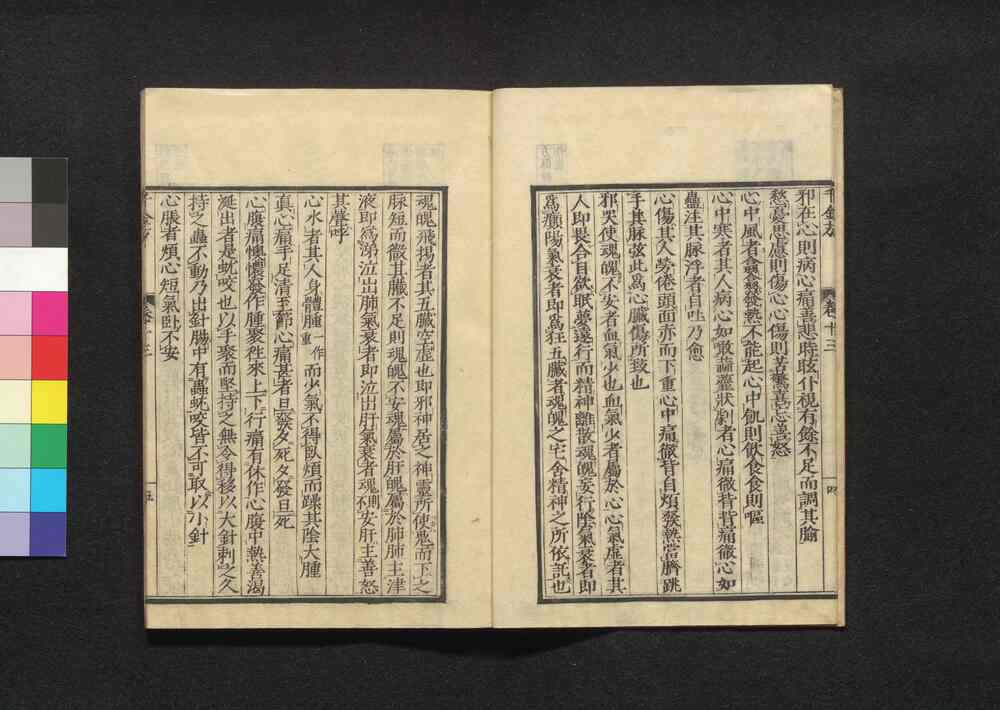 千金方　卷十三　四
邪在心則病心痛善悲時眩仆視有餘不足而調其腧
愁憂思慮則傷心心傷則苦驚喜忘善怒
心中風者翕翕發熱不能起心中飢則飲食食則嘔
心中寒者其人病心如噉蒜齏狀劇者心痛徹背背痛徹心如
蠱注其脉浮者自吐乃愈
心傷其人勞倦頭面赤而下重心中痛徹背自煩發熱當臍跳
手其脉弦此爲心臟傷所致也
邪哭使魂魄不安者血氣少也血氣少者屬於心心氣虛者其
人即畏合目欲眠夢遠行而精神離散魂魄妄行陰氣衰者即
爲癲陽氣衰者即爲狂五臟者魂魄之宅舍精神之所依託也
魂魄飛揚者其五臟空虛也即邪神居之神靈所使鬼而下之
脉短而微其臟不足則魂魄不安魂屬於肝魄屬於肺肺主津
液即爲涕泣出肺氣衰者即泣出肝氣衰者魂則不安肝主善怒
其聲呼
心水者其人身體腫一作重而少氣不得臥煩而躁其陰大腫
真心痛手足清至節心痛甚者旦發夕死夕發旦死
心腹痛懊憹發作腫聚往來上下行痛有休作心腹中熱善渴
涎出者是蚘咬也以手聚而堅持之無令得移以大針刺之久
持之蟲不動乃出針腸中有蟲蚘咬皆不可取以小針
心脹者煩心短氣臥不安
千金方　卷十三　五